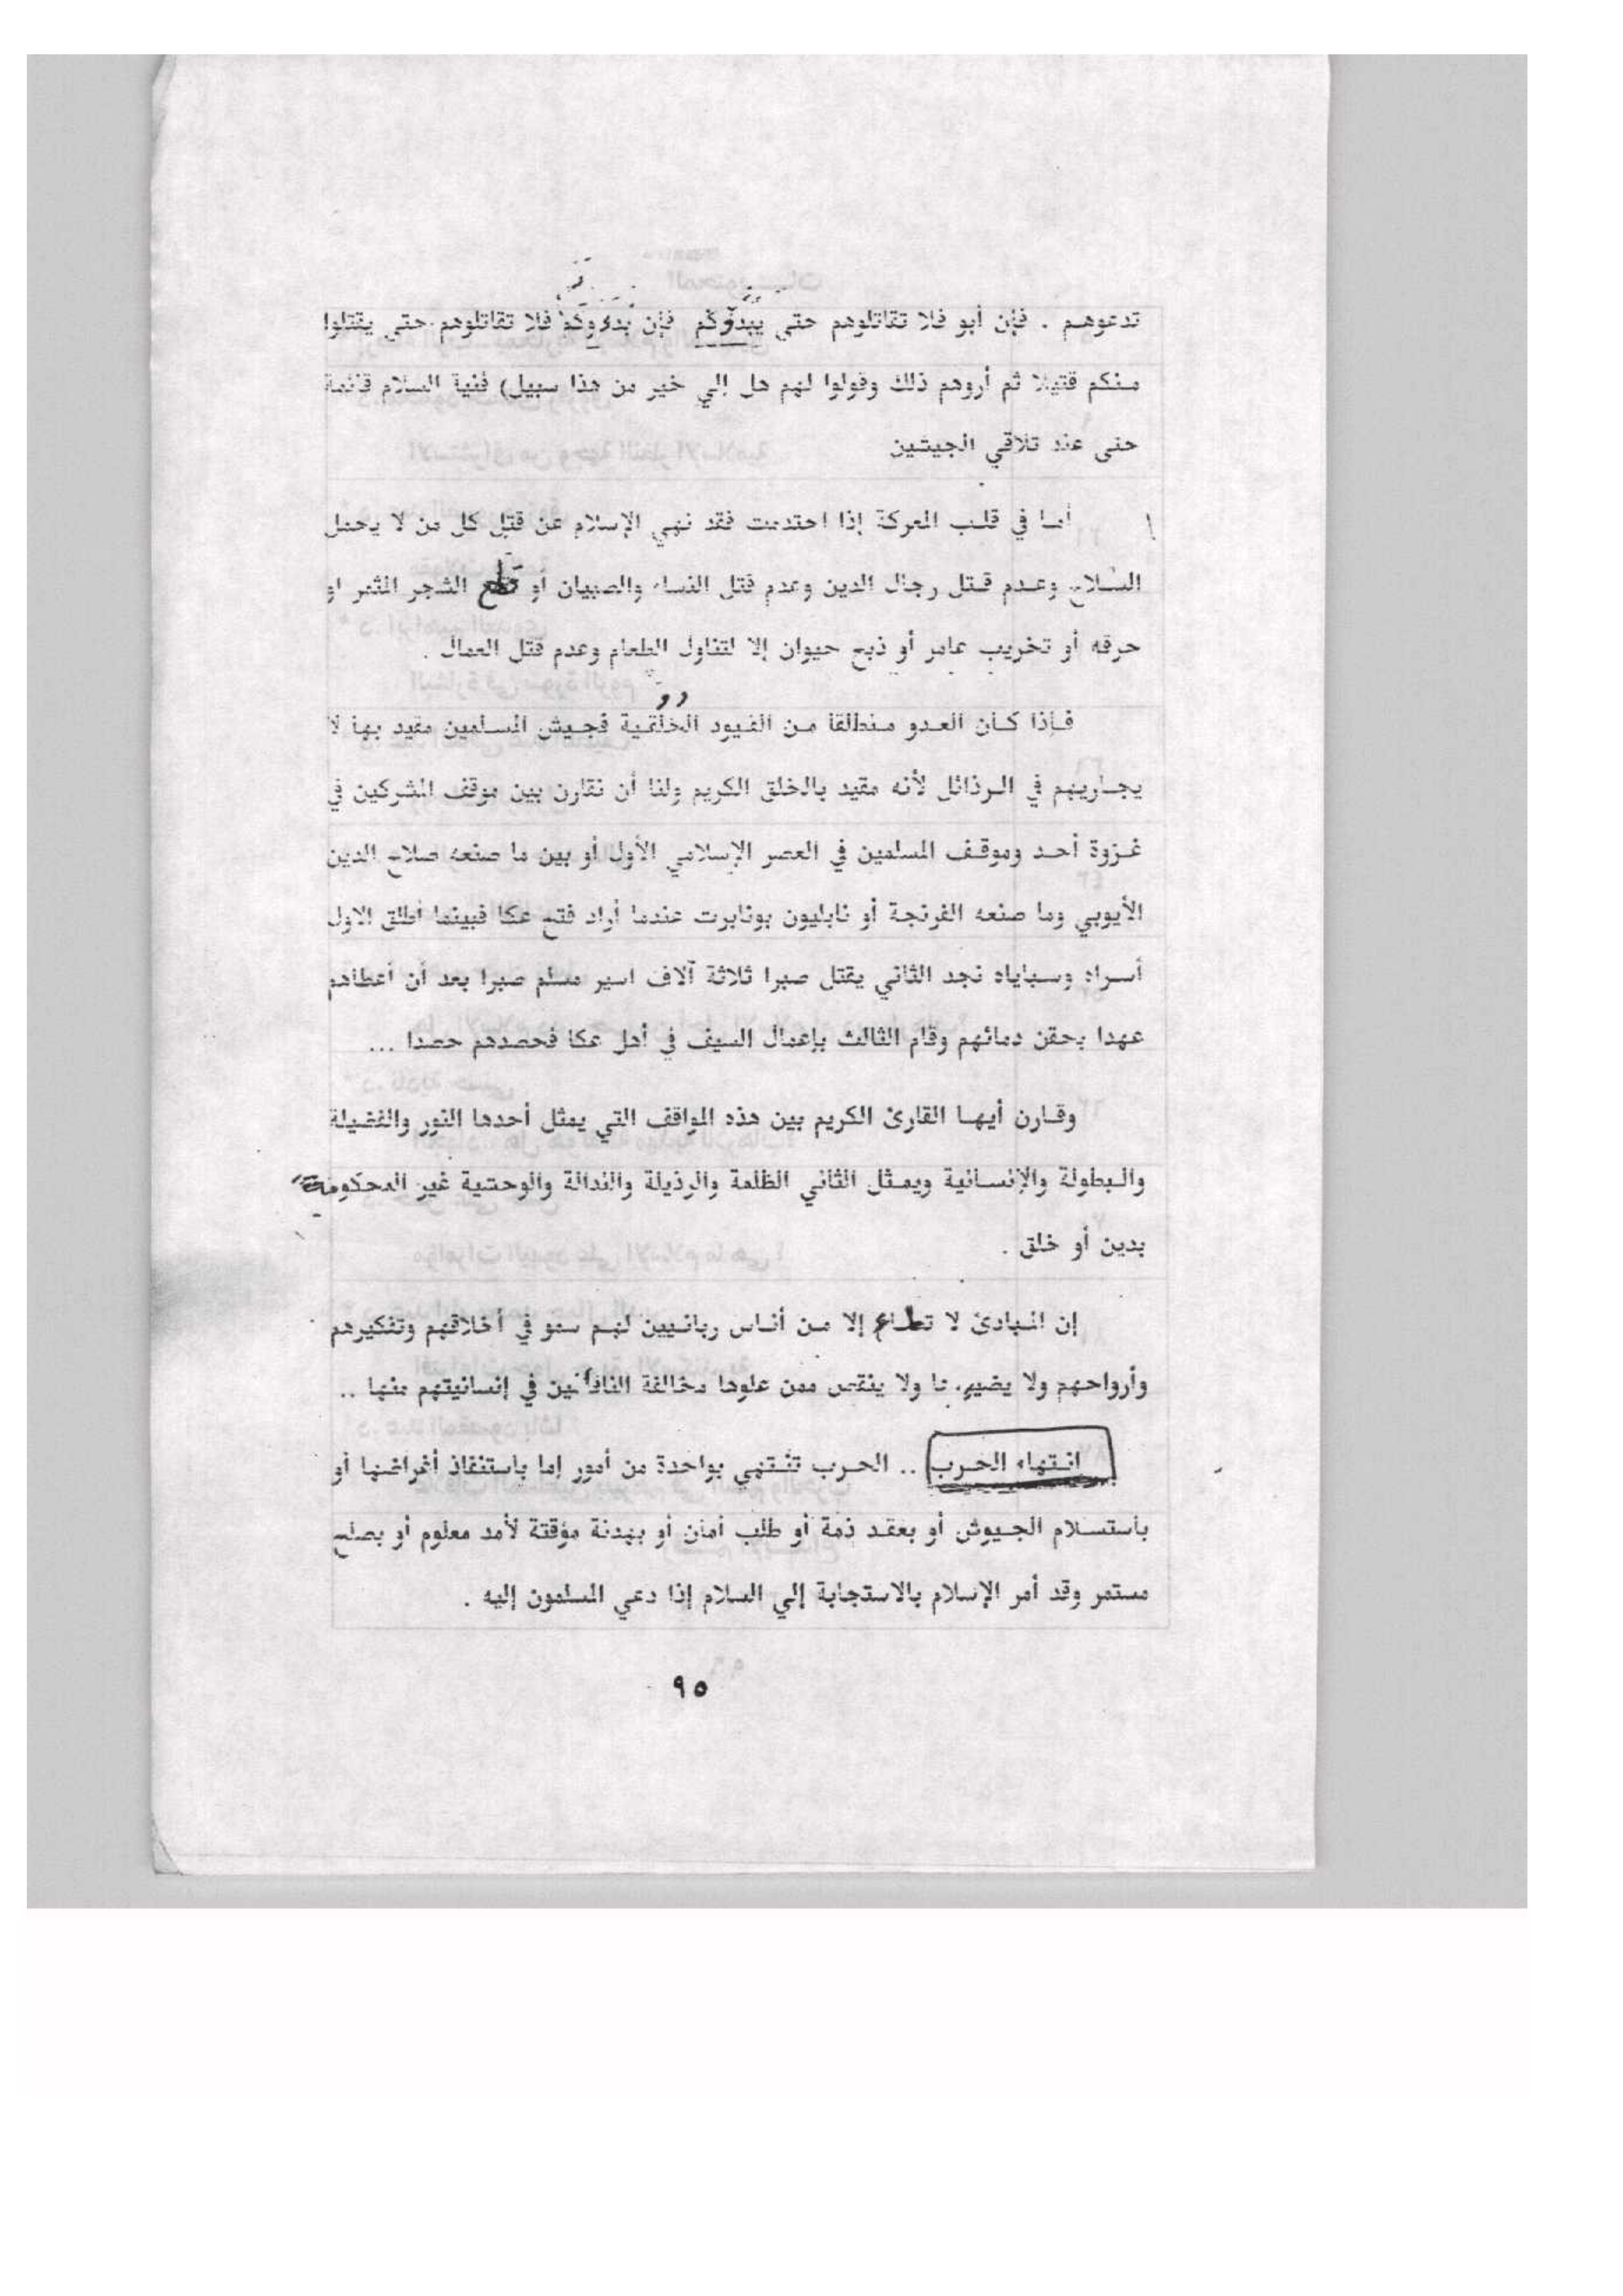 تدعوهم . فإن أبو فلا تقاتلوهم حتى يبدؤكم فإن بدءوكم فلا تقاتلوهم حتى يقتلوا
منكم قتيلا ثم أروهم ذلك وقولوا لهم هل إلي خير من هذا سبيل) فنية السلام قائمة
حتى عند تلاقي الجيشين
أما في قلب المعركة إذا احتدمت فقد نهي الإسلام عن قتل كل من لا يحمل
السلاح وعدم قتل رجال الدين وعدم قتل النساء والصبيان أو قطع الشجر المثمر او
حرقه أو تخريب عامر أو ذبح حيوان إلا لتناول الطعام وعدم قتل العمال .
فإذا كان العدو منطلقا من القيود الخلقية فجيش المسلمين مقيد بها لا
يجاريهم في الرذائل لأنه مقيد بالخلق الكريم ولنا أن نقارن بين موقف المشركين في
غزوة أحد وموقف المسلمين في العصر الإسلامي الأول أو بين ما صنعه صلاح الدين
الأيوبي وما صنعه الفرنجة أو نابليون بونابرت عندما أراد فتح عكا فبينما أطلق الاول
أسراه وسباياه نجد الثاني يقتل صبرا ثلاثة آلاف اسير مسلم صبرا بعد أن أعطاهم
عهدا بحقن دمائهم وقام الثالث بإعمال السيف في أهل عكا فحصدهم حصدا ...
وقارن أيها القارئ الكريم بين هذه المواقف التي يمثل أحدها النور والفضيلة
والبطولة والإنسانية ويمثل الثاني الظلمة والرذيلة والنذالة والوحشية غير المحكومة
بدين أو خلق .
إن المبادئ لا تطاع إلا من أناس ربانيين لهم سمو في أخلاقهم وتفكيرهم
وأرواحهم ولا يضيرها ولا ينقص ممن علوها مخالفة الناقصين في إنسانيتهم منها ..
انتهاء الحرب .. الحرب تنتهي بواحدة من أمور إما باستنفاذ أغراضها أو
باستسلام الجيوش أو بعقد ذمة أو طلب أمان أو بهدنة مؤقتة لأمد معلوم أو بصلح
مستمر وقد أمر الإسلام بالاستجابة إلي السلام إذا دعي المسلمون إليه .
٩٥